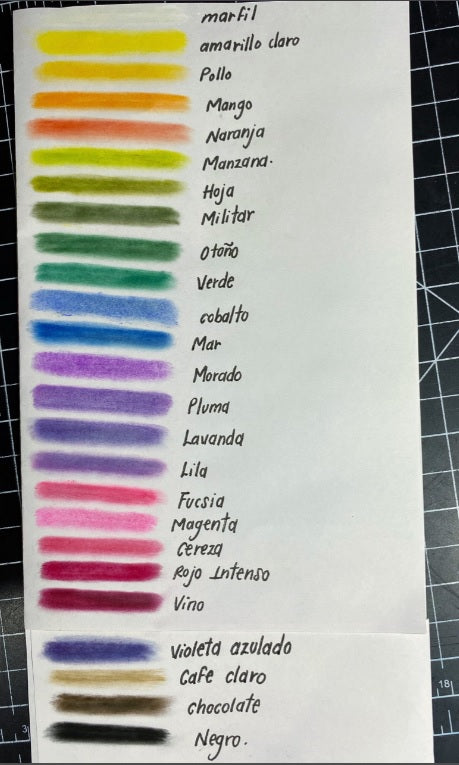 marfil
amarillo claro
Pollo
Mango
Naranja
Manzana.
Hoja
Militar
Otoño
Verde
cobalto
Mar
Morado
Pluma
Lavanda
Lila
Fucsia
Magenta
Cereza
Rojo Intenso
Vino
Violeta azulado
Cafe claro
chocolate
Negro.
18
3